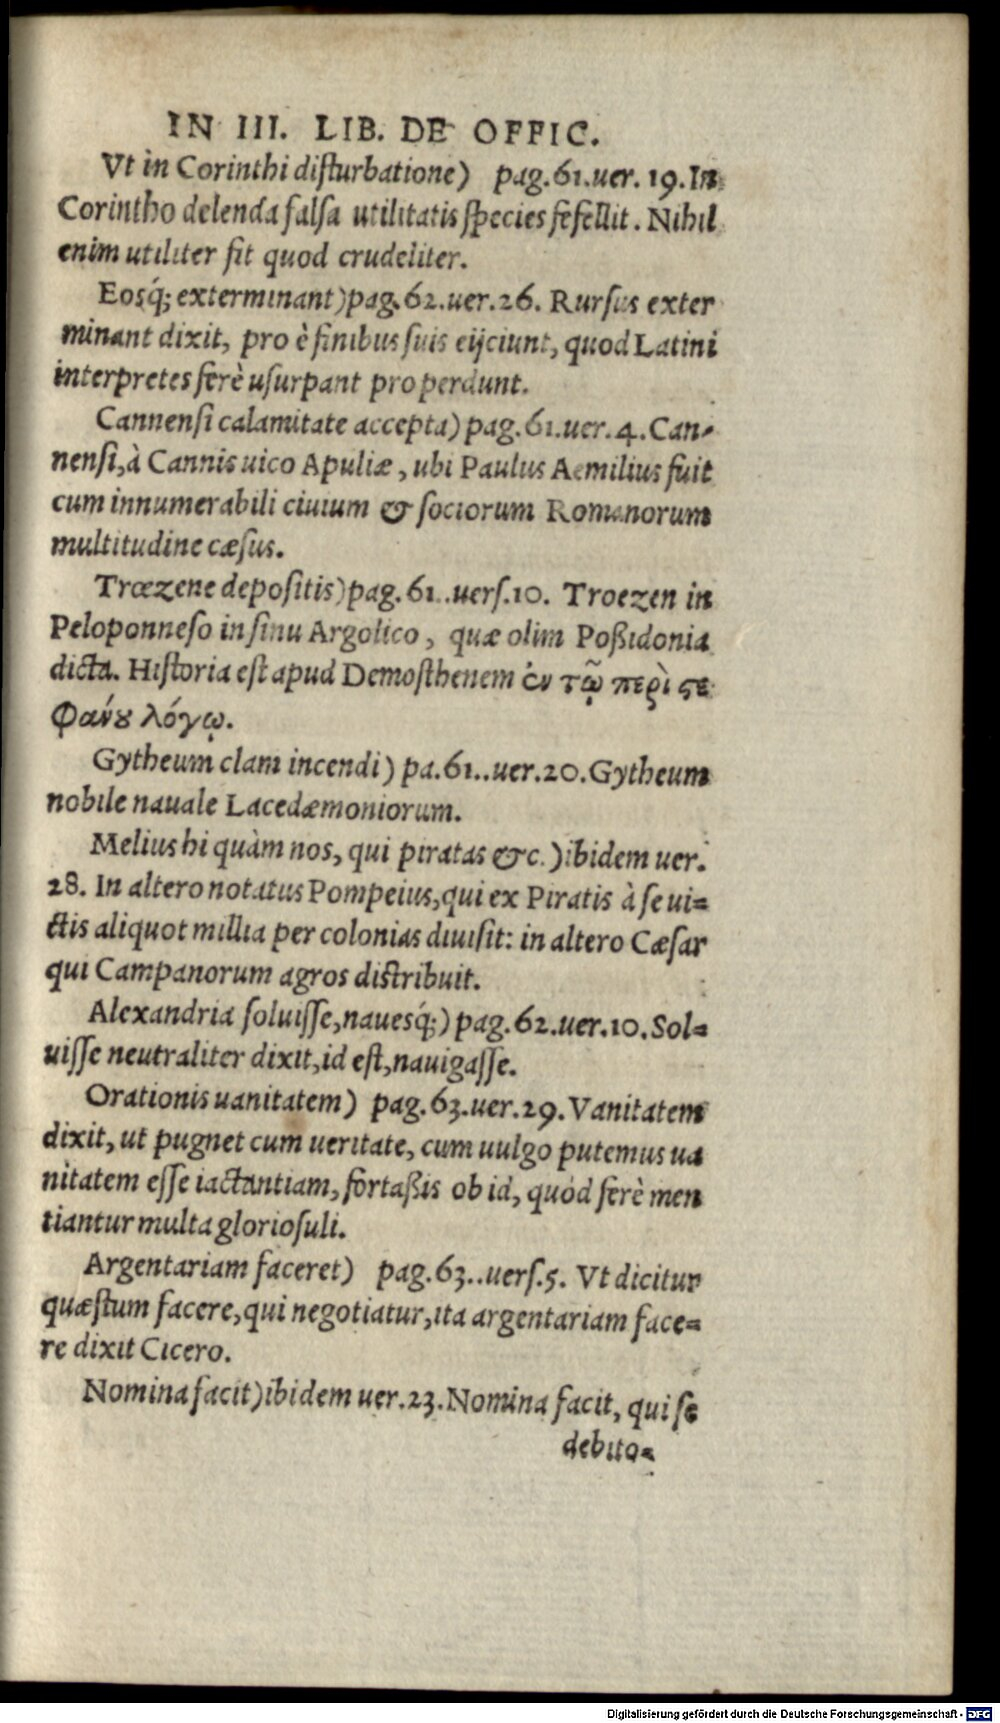 IN III. LIB. DE OFFIC.
Vt in Corinthi disturbatione) pag. 61. uer. 19. In
Corintho delenda falsa utilitatis species fefellit. Nihil
enim utiliter fit quod crudeliter.
Eosq́; exterminant) pag. 62. uer. 26. Rursus exter
minant dixit, pro è finibus suis eijciunt, quod Latini
interpretes ferè usurpant pro perdunt.
Cannensi calamitate accepta) pag. 61. uer. 4. Can-
nensi, à Cannis uico Apuliæ, ubi Paulus Aemilius fuit
cum innumerabili ciuium & sociorum Romanorum
multitudine cæsus.
Trœzene depositis) pag. 61.. uers. 10. Troezen in
Peloponneso in sinu Argolico, quæ olim Poßidonia
dicta. Historia est apud Demosthenem ἐν τῷ περὶ ϛε
φάνȣ λόγῳ.
Gytheum clam incendi) pa. 61.. uer. 20. Gytheum
nobile nauale Lacedæmoniorum.
Melius hi quàm nos, qui piratas &c.) ibidem uer.
28. In altero notatus Pompeius, qui ex Piratis à se ui=
ctis aliquot millia per colonias diuisit: in altero Cæsar
qui Campanorum agros distribuit.
Alexandria soluisse, nauesq́;) pag. 62. uer. 10. Sol=
uisse neutraliter dixit, id est, nauigasse.
Orationis uanitatem) pag. 63. uer. 29. Vanitatem
dixit, ut pugnet cum ueritate, cum uulgo putemus ua
nitatem esse iactantiam, fortaßis ob id, quòd ferè men
tiantur multa gloriosuli.
Argentariam faceret) pag. 63.. uers. 5. Vt dicitur
quæstum facere, qui negotiatur, ita argentariam face=
re dixit Cicero.
Nomina facit) ibidem uer. 23. Nomina facit, qui se
debito=
Digitalisierung gefördert durch die Deutsche Forschungsgemeinschaft - DFG